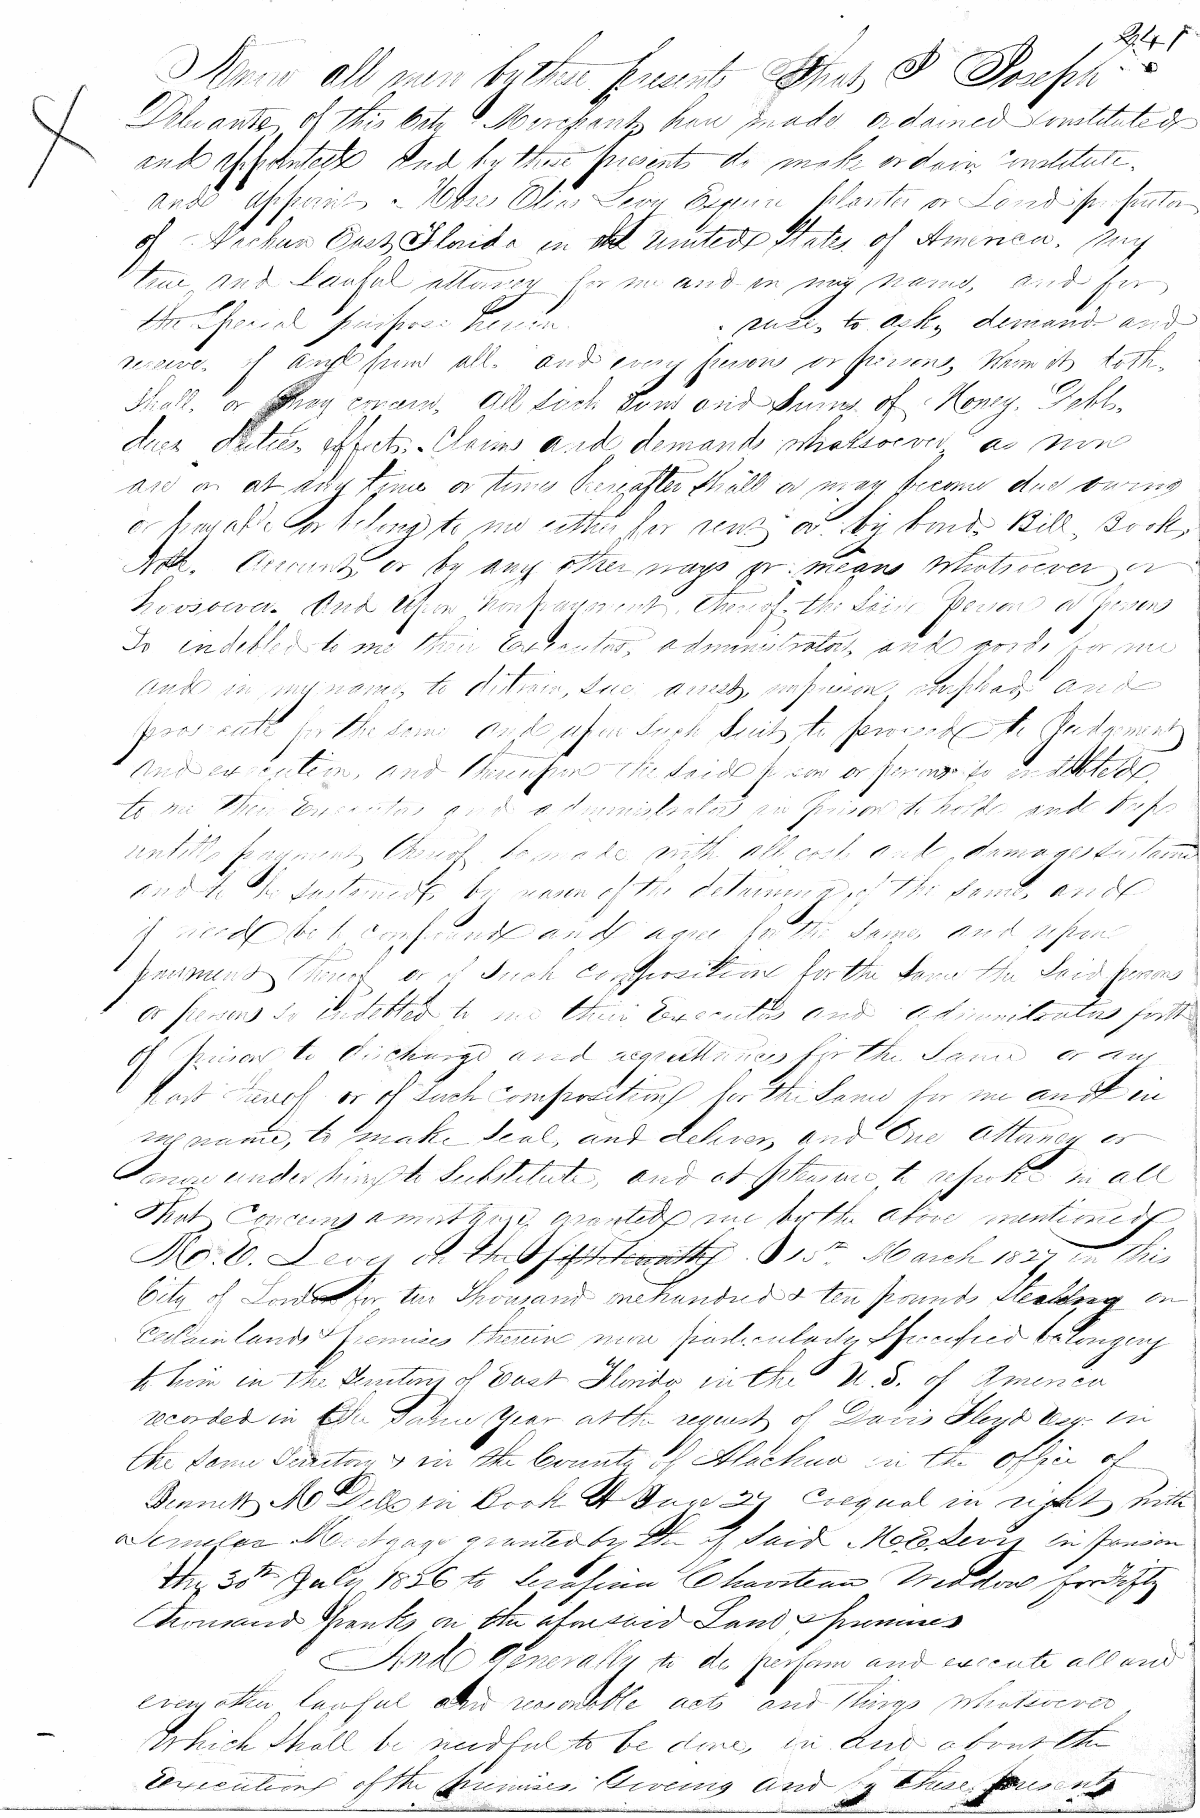 241
Know all men by these presents That I Joseph
of this City Merchant have made ordained constituted
and appointed and by these presents do make ordain constitute
and appoint Moses Elias Levy Esquire planter or Land proprietor
of East Florida in the United States of America. my
true and Lawful attorney for me and in my name, and for
the Special purpose herein use, to ask, demand and
receive, of and from all, and every persons or persons, whom it doth
Shall, or may concern, All such Sum and Sums of Money, Debts,
dues, duties, effects, Claims and demands whatsoever, as now
are or at any time or times hereafter Shall or may become due owing
or payable or belong to me either for rent or by bond, Bill, Book,
Note, Account, or by any other ways or means whatsoever or
howsoever. And upon nonpayment thereof, the Said Persons or persons
So indebted to me their Executors, administrators, and goods for me
and in my name, to distrain, Sue, arrest, imprison, implead, and
prosecute for the same and upon Such Suit, to proceed to Judgement
and execution, and thereupon the Said person or persons so indebted
to me their Executors and administrators in prison to hold and keep
untill payment thereof be made with all cost and damages sustained
and to be sustained by reason of the detaining of the same, and
if need be to compound and agree for the same, and upon
payment thereof or of Such composition for the Same the Said persons
or persons so indebted to me their Executors and administrators forth
of prison to discharge and acquittances for the Same or any
part thereof or of Such composition for the Same for me and in
my name, to make Seal, and deliver, and One Attorney or
more under him to Substitute, and at pleasure to revoke in all
that Concerns a mortgage granted me by the above mentioned
M. E. Levy on the 15th March 1827 in this
City of London for two Thousand one hundred & ten pounds Sterling on
Certain lands & premises therein more particularly Specified belonging
to him in the Territory of East Florida in the U. S. of America
recorded in the same Year at the request of Davis Floyd Esq. in
the same Territory & in the County of Alachua in the office of
Bennett M Dell in Book A Page 27 Coequal in right with
a Similar Mortgage granted by the of said M. E. Levy in
the 30th July 1826 to Serafina Chauviteau Widdow for Fifty
thousand franks on the aforesaid Land & premises
And Generally to do perform and execute all and
every other lawful and reasonable acts and things whatsoever
which Shall be needful to be done, in and about the
Execution of the premises Giveing and by these presents